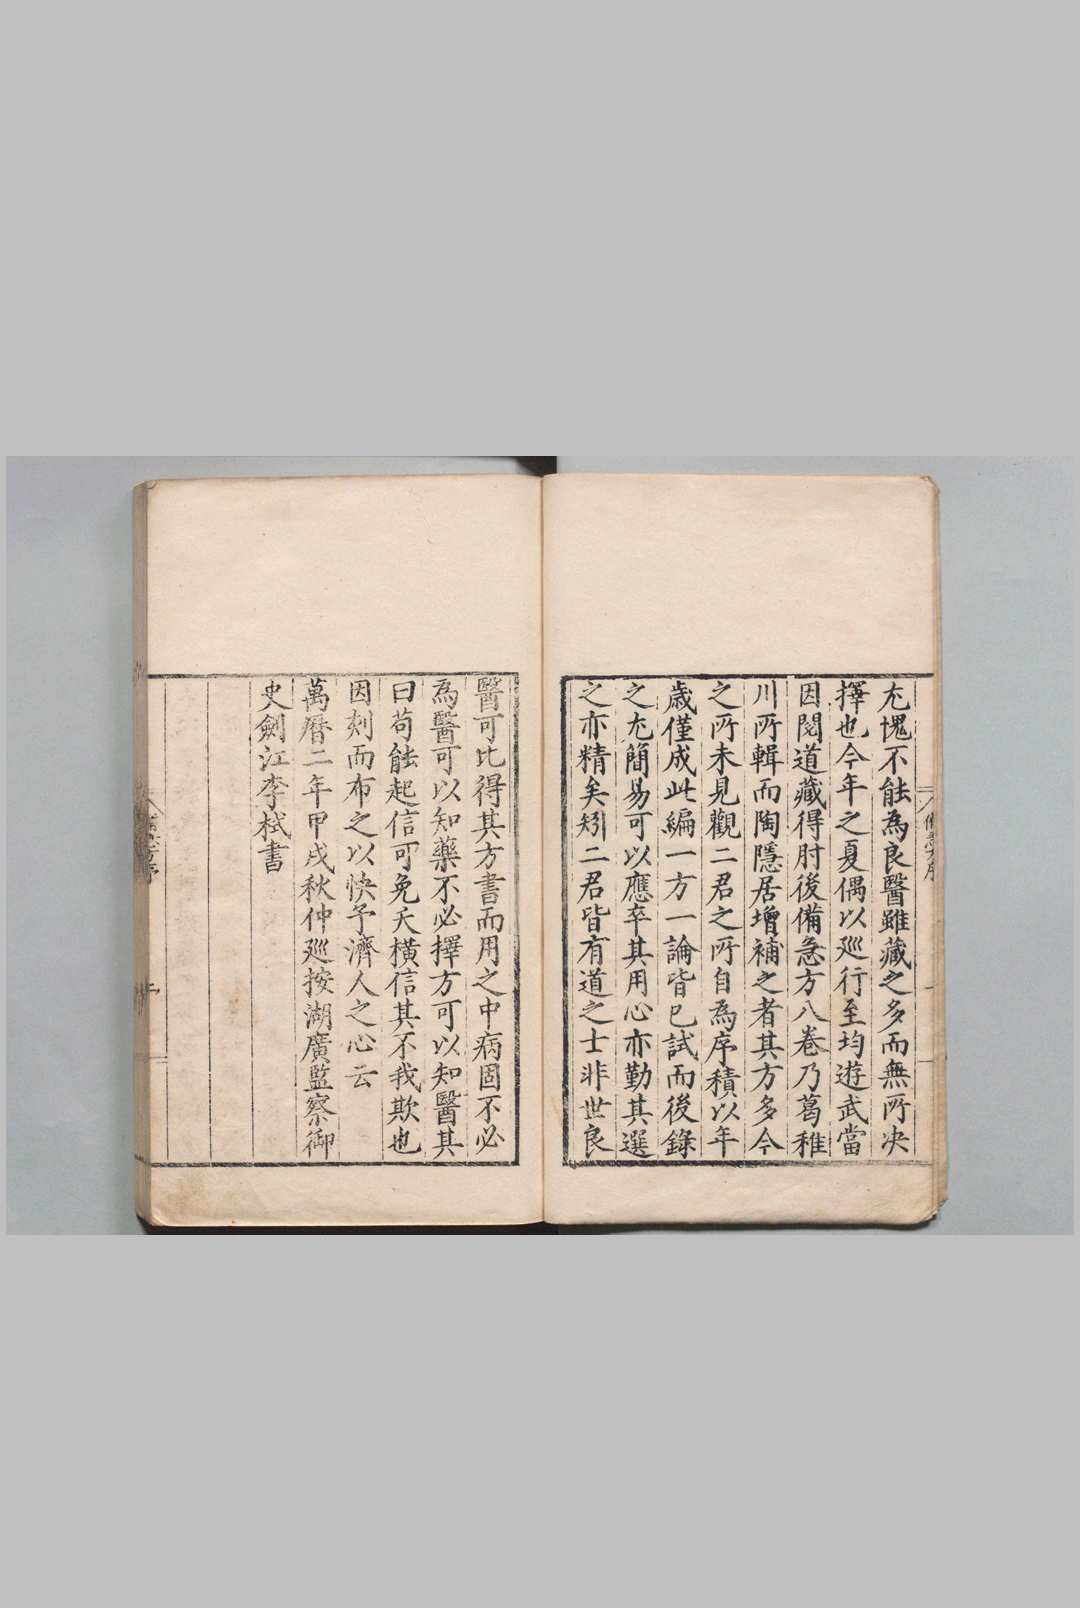 尤愧不能為良醫雖藏之多而無所决
擇也今年之夏偶以廵行至均遊武當
因閱道藏得肘後備急方八卷乃葛稚
川所輯而陶隱居增補之者其方多今
之所未見觀二君之所自為序積以年
歲僅成此編一方一論皆已試而後錄
之尤簡易可以應卒其用心亦勤其選
之亦精矣矧二君皆有道之士非世良
醫可比得其方書而用之中病固不必
為醫可以知藥不必擇方可以知醫其
曰苟能起信可免夭橫信其不我欺也
因刻而布之以快予濟人之心云
萬曆二年甲戌秋仲廵按湖廣監察御
史劍江李栻書